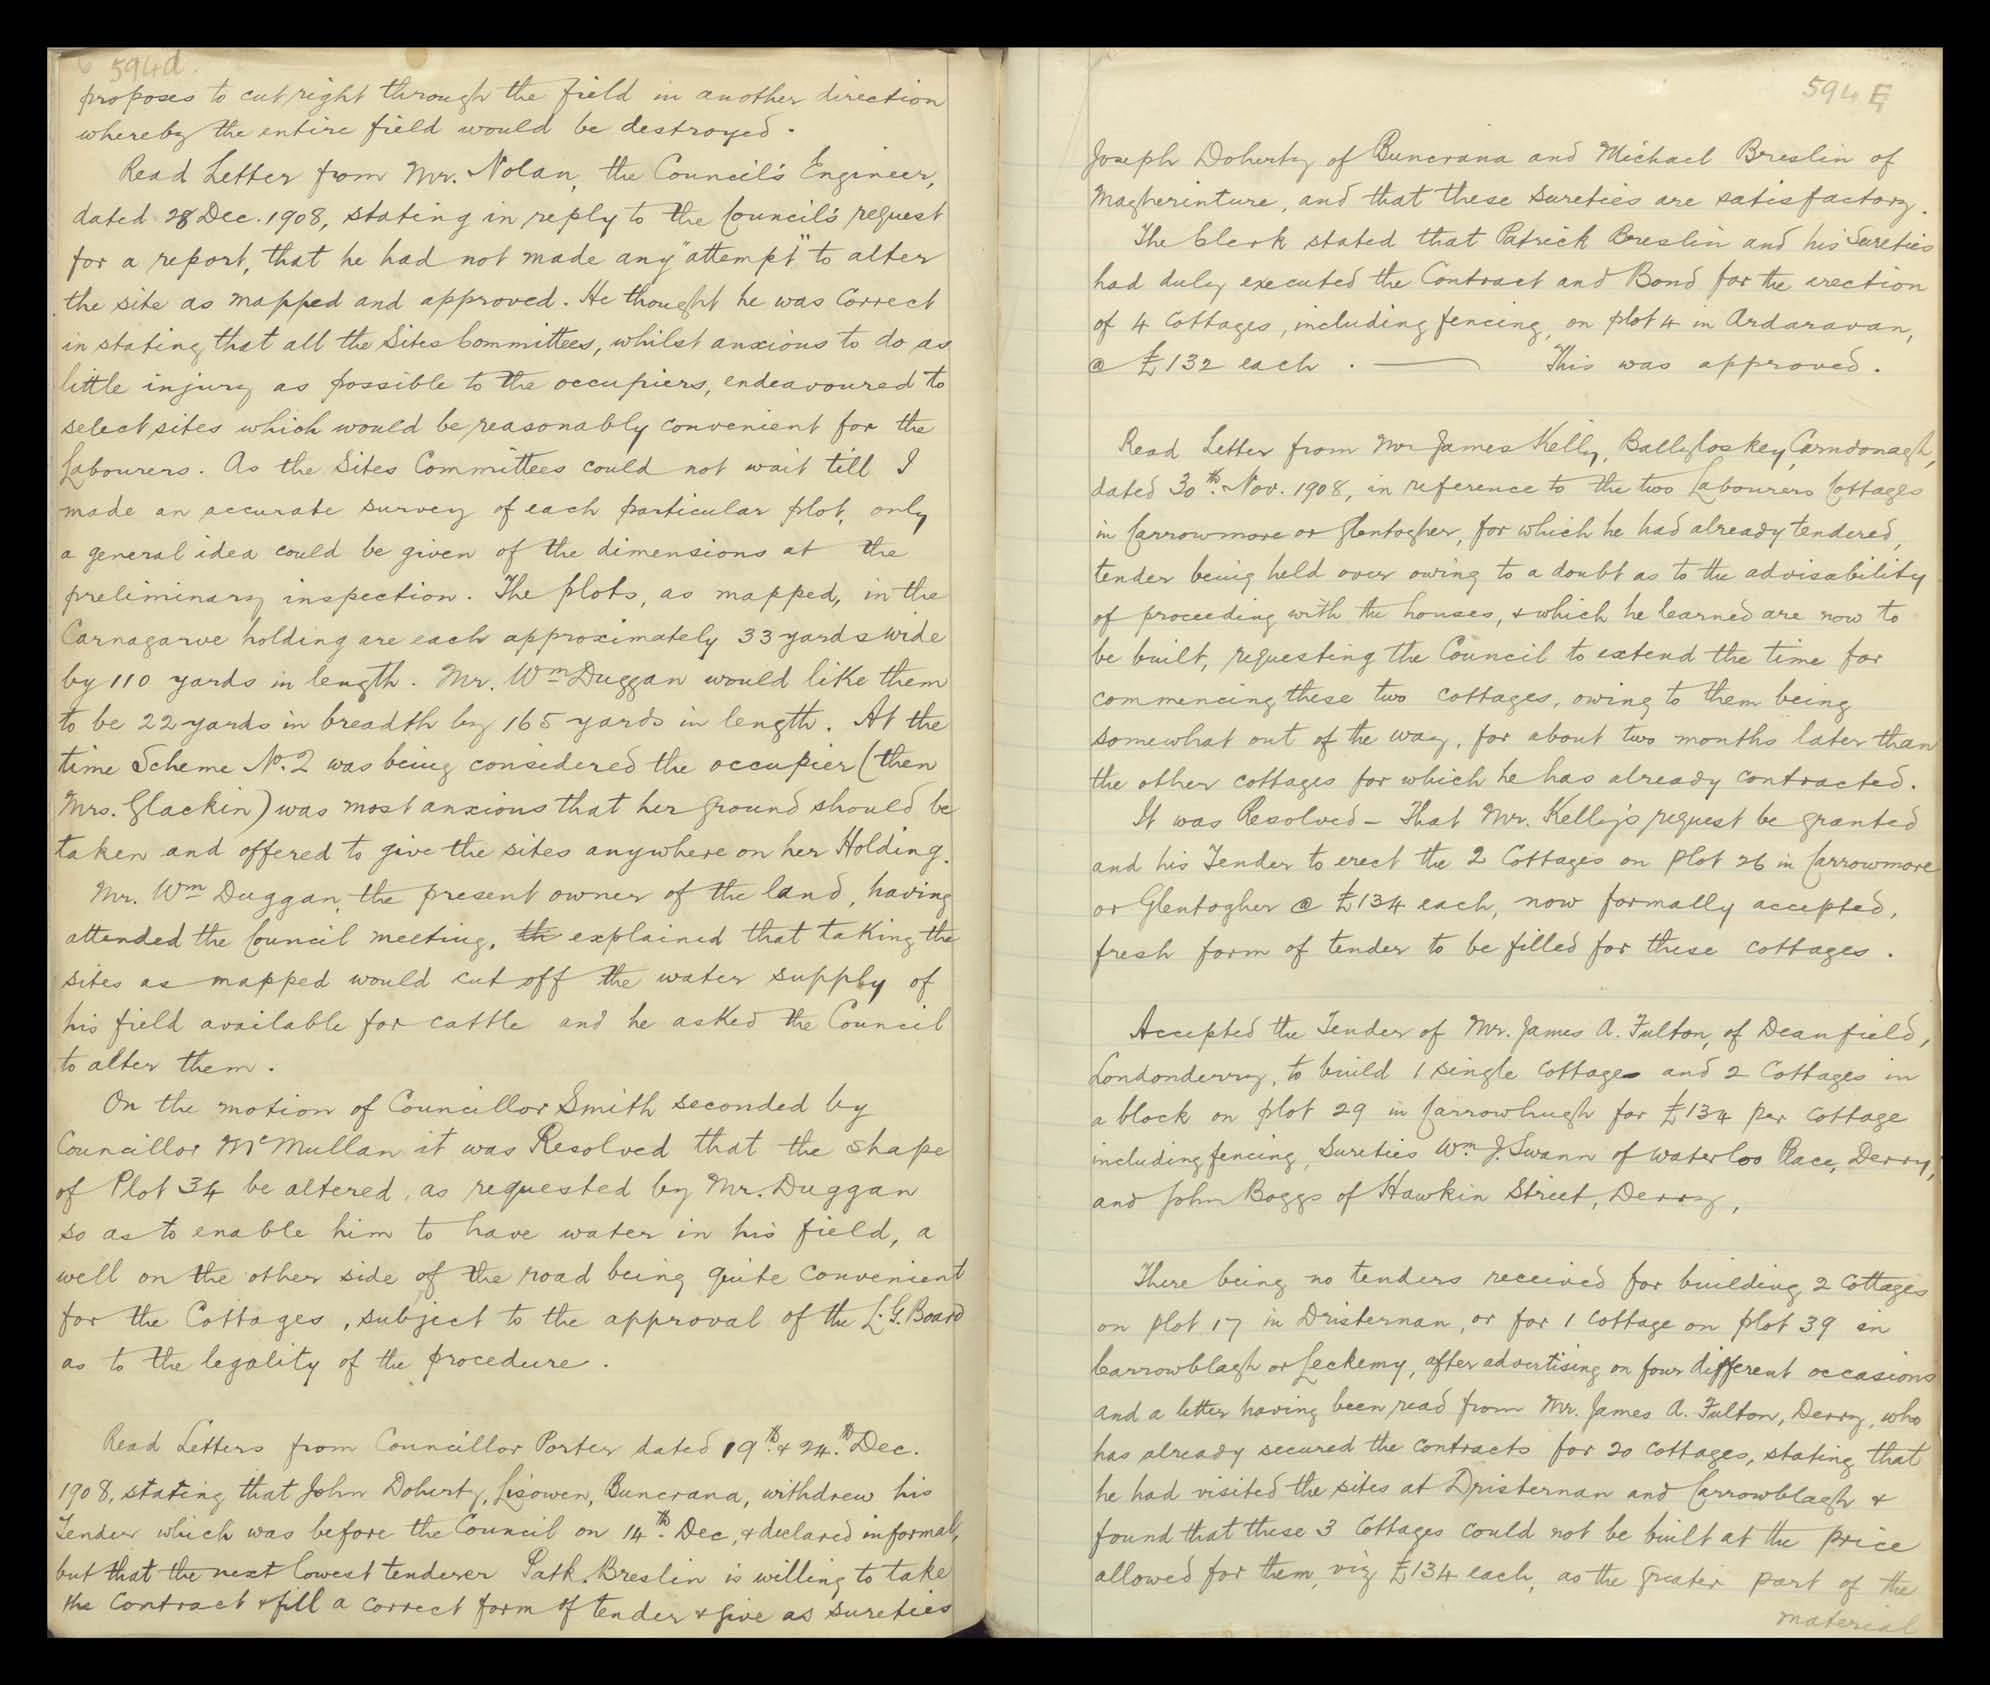 594d.
proposes to cut right through the field in another direction
whereby the entire field would be destroyed.
Read Letter from Mr. Nolan, the Council's Engineer,
dated 28 Dec. 1908, stating in reply to the Council's request
for a report, that he had not made any "attempt" to alter
the site as mapped and approved. He thought he was correct
in stating that all the Sites Committees, whilst anxious to do as
little injury as possible to the occupiers, endeavoured to
select sites which would be reasonably convenient for the
Labourers. As the Sites Committees could not wait till I
made an accurate survey of each particular plot, only
a general idea could be given of the dimensions at the
preliminary inspection. The plots, as mapped, in the
Carnagarve holding are each approximately 33 yards wide
by 110 yards in length. Mr. Wm Duggan would like them
to be 22 yards in breadth by 165 yards in length. At the
time Scheme No. 2 was being considered the occupier (then
Mrs. Glackin) was most anxious that her ground should be
taken and offered to give the sites anywhere on her Holding.
Mr. Wm Duggan, the present owner of the land, having
attended the Council meeting, th explained that taking the
sites as mapped would cut off the water supply of
his field available for cattle and he asked the Council
to alter them.
On the motion of Councillor Smith seconded by
Councillor McMullan it was Resolved that the shape
of Plot 34 be altered, as requested by Mr. Duggan
so as to enable him to have water in his field, a
well on the other side of the road being quite convenient
for the Cottages, subject to the approval of the L.G. Board
as to the legality of the procedure.
Read Letters from Councillor Porter dated 19th. & 24th. Dec.
1908, stating that John Doherty, Lisowen, Buncrana, withdrew his
Tender which was before the Council on 14th. Dec, & declared informal,
but that the next lowest tenderer Patk. Breslin is willing to take
the Contract & fill a correct form of tender & give as sureties
594 E
Joseph Doherty of Buncrana and Michael Breslin of
Magherinture, and that these sureties are satisfactory.
The Clerk stated that Patrick Breslin and his Sureties
had duly executed the Contract and Bond for the erection
of 4 Cottages, including fencing, on plot 4 in Ardaravan,
@ £132 each. — This was approved.
Read Letter from Mr James Kelly, Ballyloskey, Carndonagh,
dated 30th. Nov. 1908, in reference to the two Labourers Cottages
in Carrowmore or Glentogher, for which he had already tendered,
tender being held over owing to a doubt as to the advisability
of proceeding with the houses, & which he learned are now to
be built, requesting the Council to extend the time for
commencing these two cottages, owing to them being
somewhat out of the way, for about two months later than
the other cottages for which he has already contracted.
It was Resolved – That Mr. Kelly's request be granted
and his Tender to erect the 2 Cottages on plot 26 in Carrowmore
or Glentogher @ £134 each, now formally accepted,
fresh form of tender to be filled for these cottages.
Accepted the Tender of Mr. James A. Fulton, of Deanfield,
Londonderry, to build 1 single cottage and 2 Cottages in
a block on plot 29 in Carrowhugh for £134 per cottage
including fencing, Sureties Wm. J. Swann of Waterloo Place, Derry,
and John Boggs of Hawkin Street, Derry,
There being no tenders received for building 2 cottages
on plot 17 in Dristernan, or for 1 cottage on plot 39 in
Carrowblagh or Leckemy, after advertising on four different occasions
and a letter having been read from Mr. James A. Fulton, Derry, who
has already secured the contracts for 20 cottages, stating that
he had visited the sites at Dristernan and Carrowblagh &
found that these 3 Cottages could not be built at the price
allowed for them, viz £134 each, as the greater part of the
material